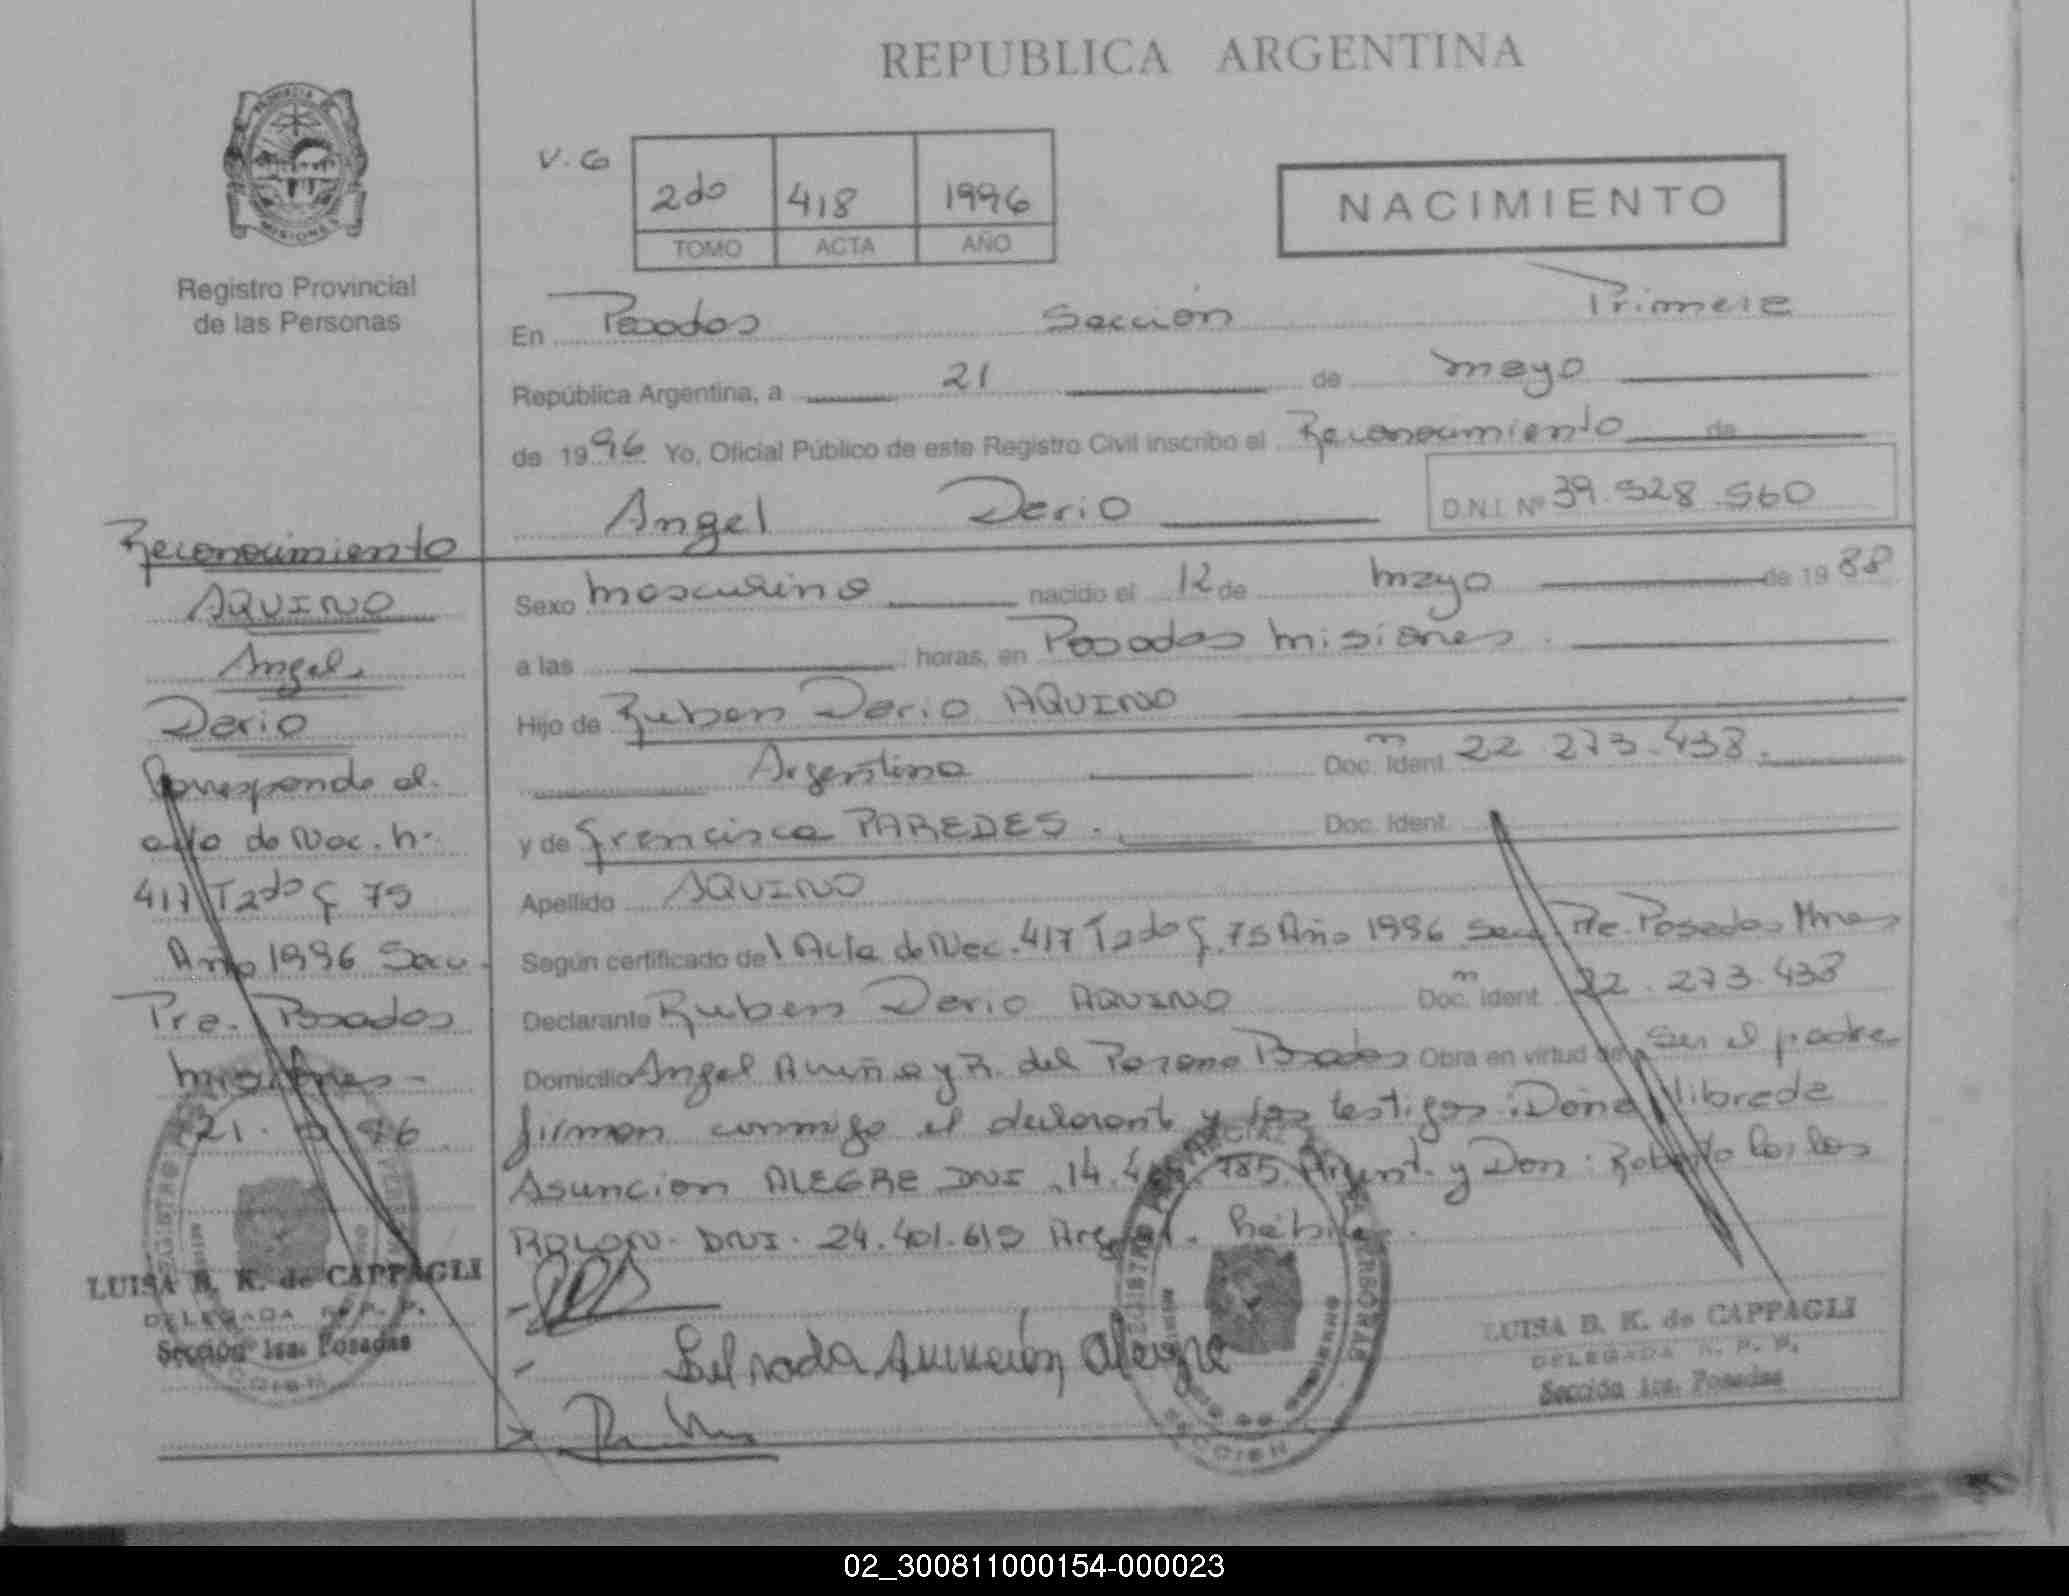 REPUBLICA ARGENTINA
V. G
2do 418 1996
TOMO ACTA AÑO
NACIMIENTO
PROVINCIA DE
MISIONES
Registro Provincial
de las Personas
En Posadas Sección Primera
República Argentina, a 21 de mayo
de 1996 Yo, Oficial Público de este Registro Civil inscribo el Reconocimiento de
Angel Dario D.N.I. Nº 39.528.560
Reconocimiento
AQUINO
Angel
Dario
Corresponde al
acta de Nac. n-
417 T2do F 75
Año 1996 Secc.
Pra. Posadas
Misiones -
21. 5 96
LUISA B. K. de CAPPAGLI
DELEGADA R. P. P.
Sección 1ra. Posadas
Sexo masculino nacido el 12 de mayo de 1988
a las horas, en Posadas Misiones.
Hijo de Ruben Dario AQUINO
Argentino Doc. Ident. m 22 273.438.
y de Francisca PAREDES. Doc. Ident.
Apellido AQUINO
Según certificado del Acta de Nac. 417 T2do F. 75 Año 1996 Secc Pra. Posadas Mnes
Declarante Ruben Dario AQUINO Doc. Ident. m 22.273.438
Domicilio Angel Acuña y R. del Posadas Obra en virtud de ser el padre
firman conmigo el declarante y los testigos: Doña librada
Asuncion ALEGRE DNI .14. 185. Argent. y Don: Roberto Carlos
ROLON. DNI. 24.401.619 Argent. hábiles.
Librada Asunción Alegre
REGISTRO PROVINCIAL DE LAS PERSONAS
SECCION
LUISA B. K. de CAPPAGLI
DELEGADA R. P. P.
Sección 1ra. Posadas
02_300811000154-000023